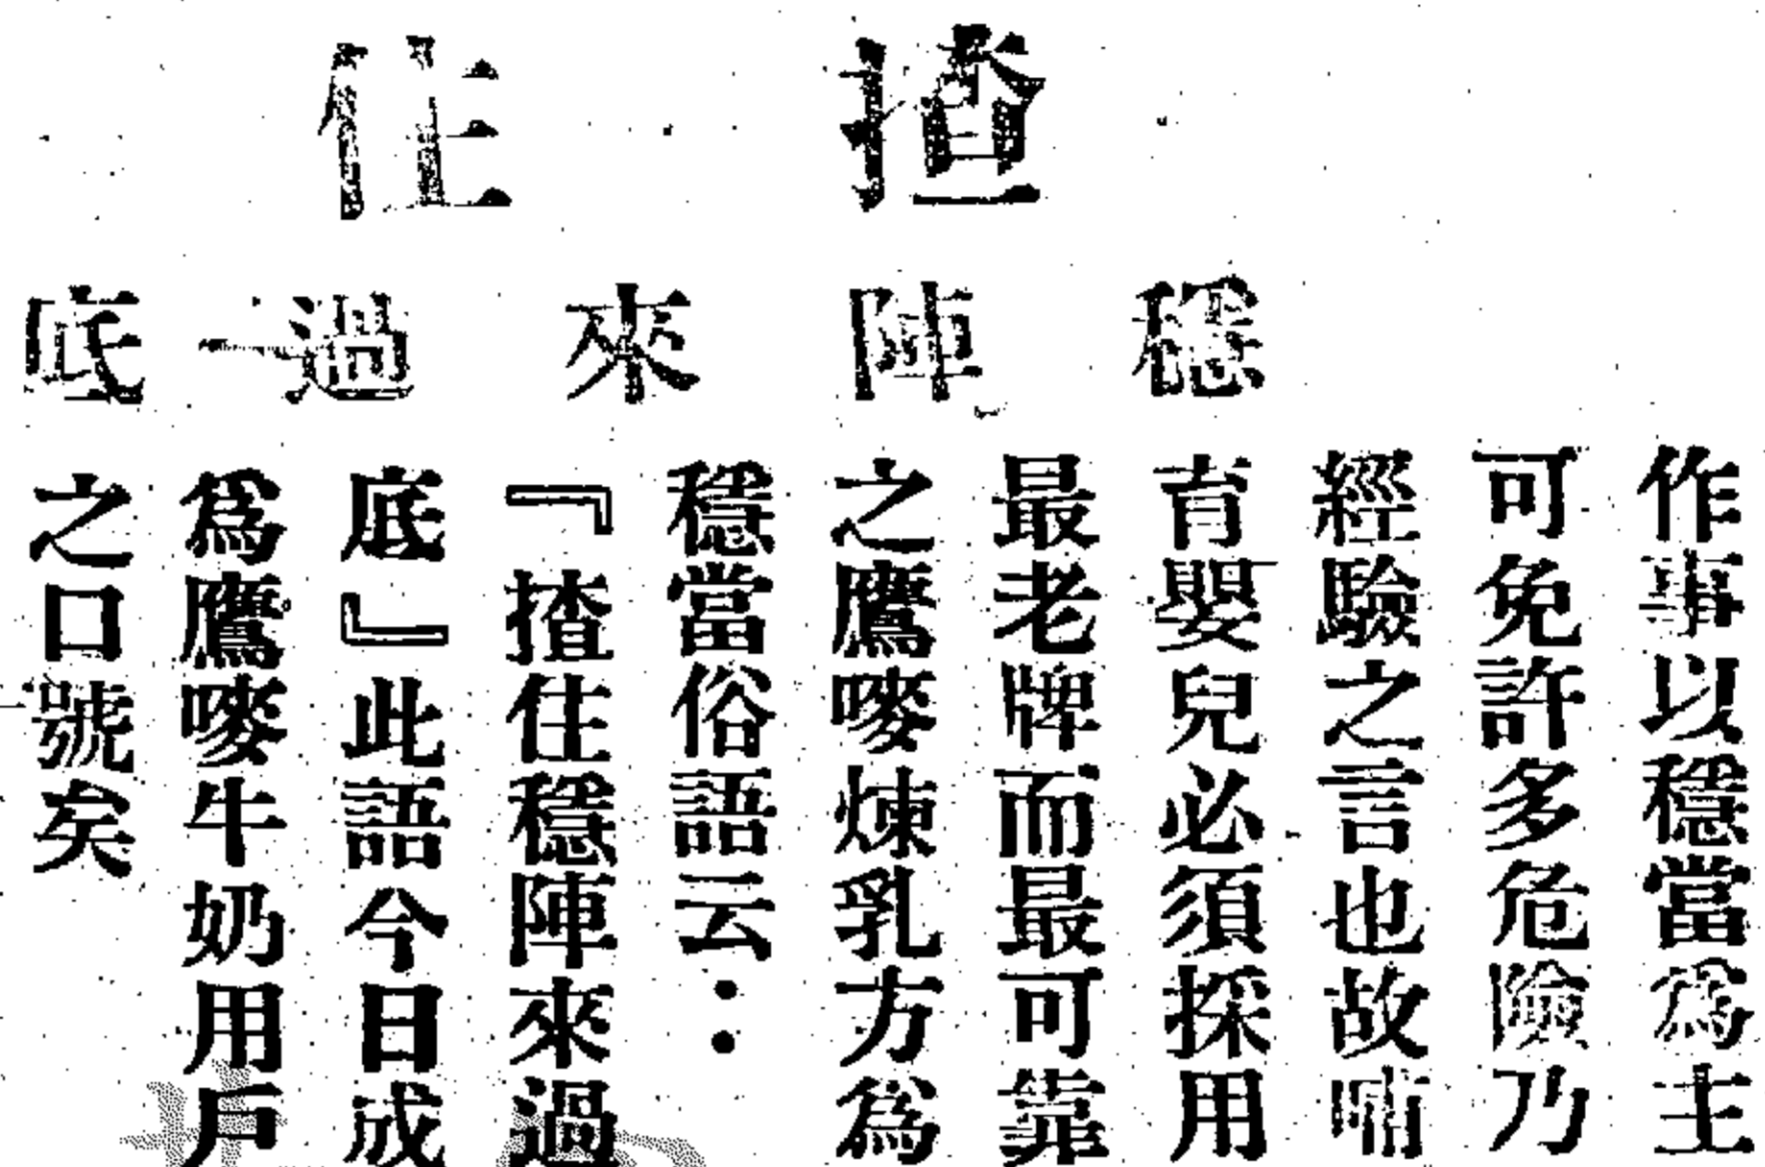 揸住
穩陣來過一底
作事以穩當為主
可免許多危險乃
經驗之言也故哺
育嬰兒必須採用
最老牌而最可靠
之鷹嘜煉乳方為
穩當俗語云：
『揸住穩陣來過
底』此語今日成
為鷹嘜牛奶用戶
之口號矣